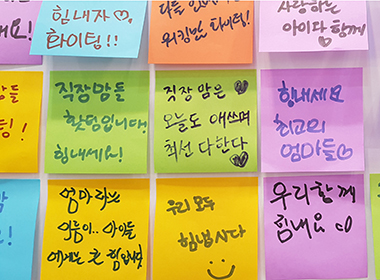 힘내자♡,
화이팅!!
워킹맘 화이팅!
사랑하는
아이와 함께
직장맘들
핫팅입니다!
힘내세요!
직장맘은
오늘도 애쓰며
최선 다한다
힘내세요
최고의
엄마들♡
엄마라는
이름이.. 아이들
에게는 큰 힘입니다
우리 모두
힘냅시다
우리함께
힘내요